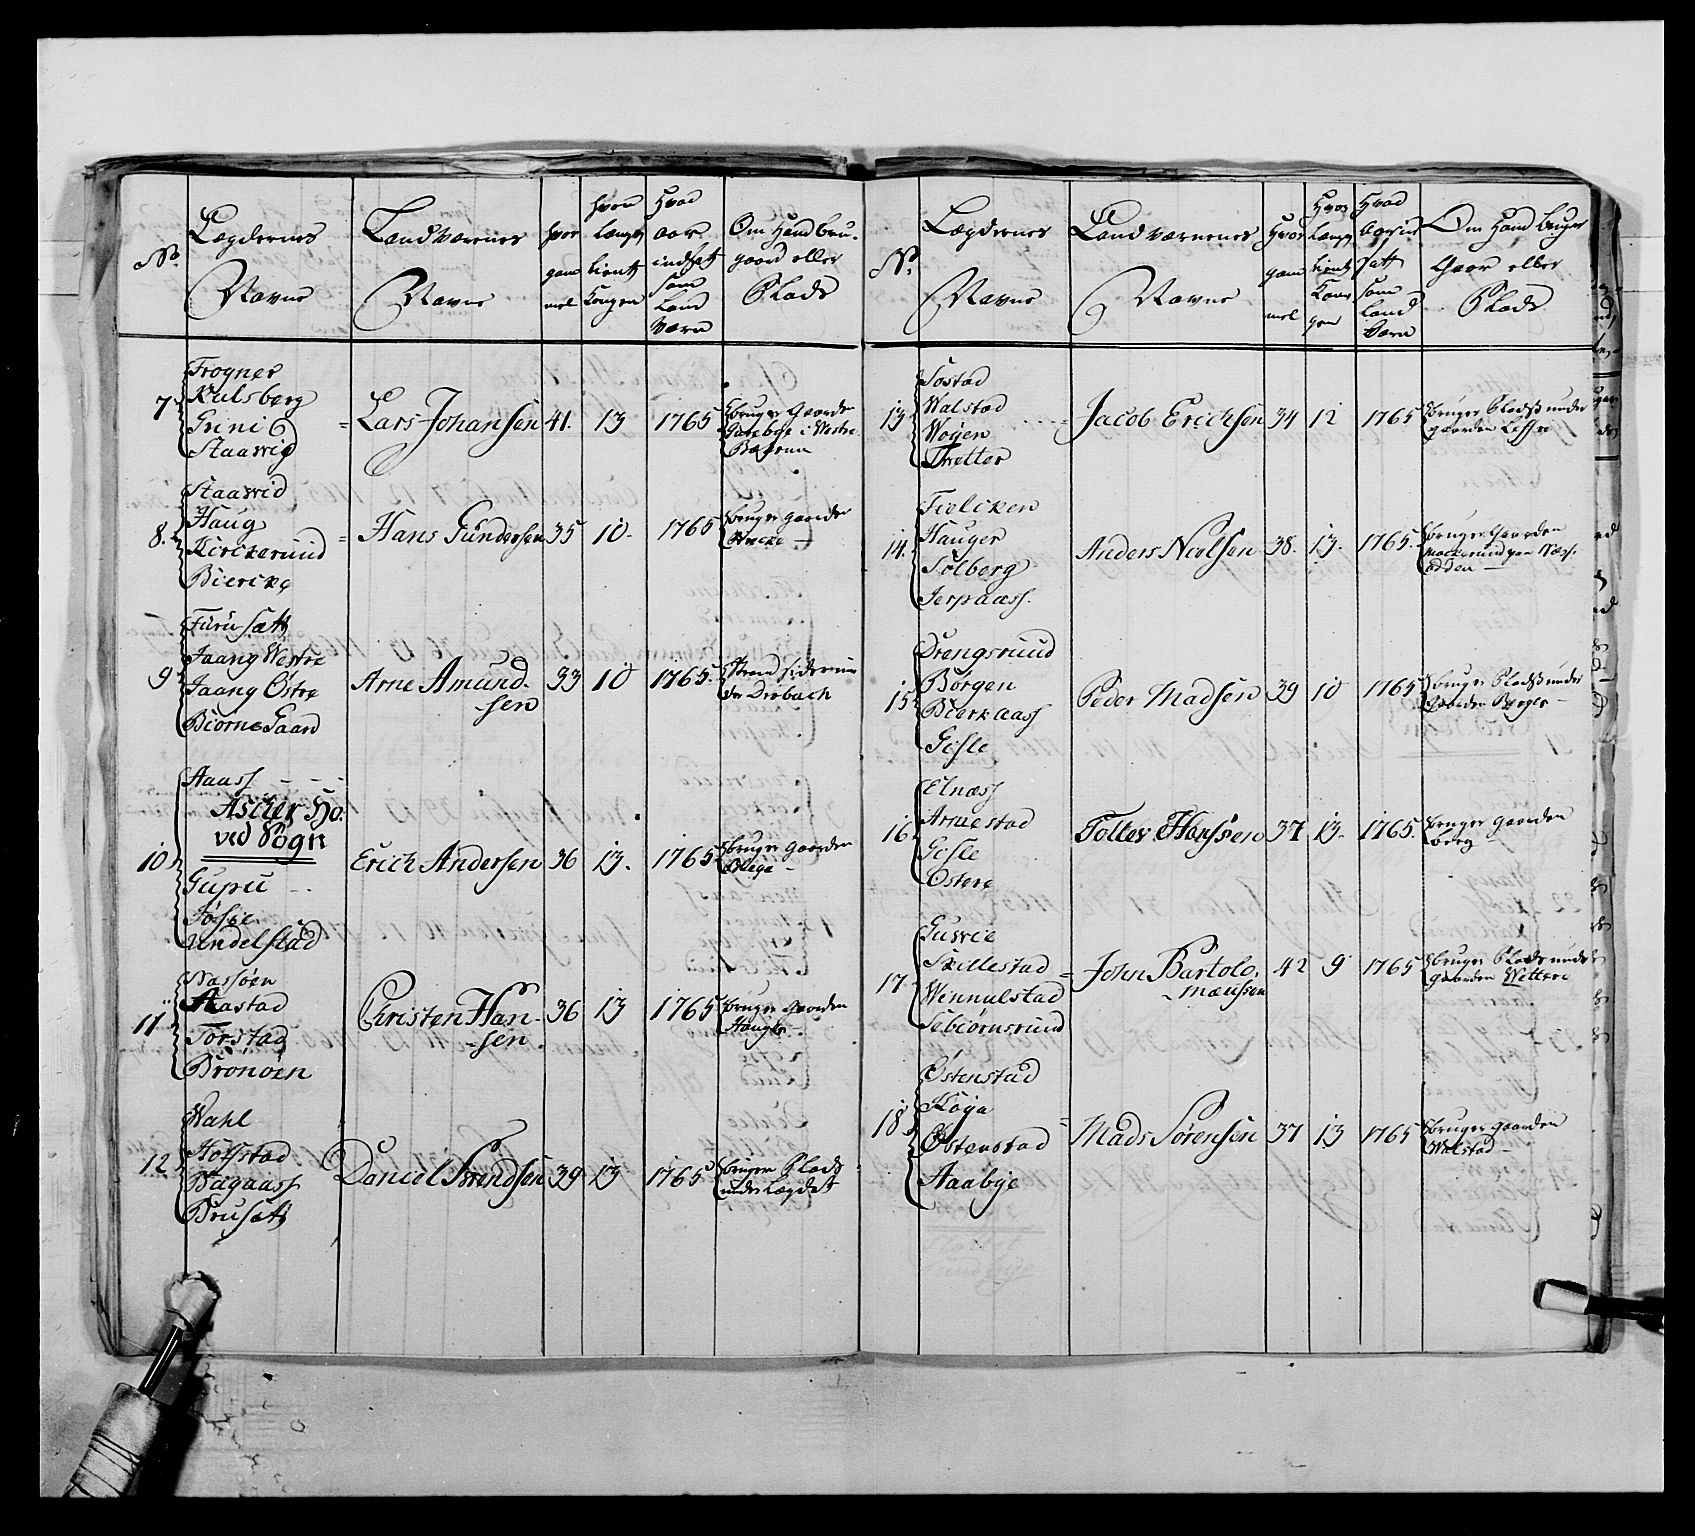 No.
Lægdernes
Navne
Landværnes
Navne
hvor
gam
mel
hvor
længe
tient
Kongen
Hvad
aar
indsat
som
Land
Værn
Om Hand bru-
gaard eller
Plads
7
Frogner
Kulsberg
Grini
Staavig
Lars Johansen 41. 13 1765
bruger Gaarden
i Westre
Bærum
8.
Staavid
Haug
Kirckeruud
Biercke
Hans Gundersen 35 10 1765
bruger gaarden
9
Furusætt
Jaang Westre
Jaang Østre
BiørneGaard
Arne Amund-
sen
33 10 1765.
Strand Sidderen
ved Drøbach
10
Aaass
Ascher Ho-
ved Sogn
Gupu
Jøssie
Undelstad
Erich Andersen 36 13. 1765
bruger gaarden
11
Nassøen
Aastad
Torstad
Brønøen
Christen Han-
sen.
36 13 1765
bruger gaarden
12
Wahl
Hofstad
Bagaass
Brusætt
Daniel Svendsen 39 13 1765
bruger Plads
under Lægdet
No.
Lægdernes
Navne
Landværnenes
Navne
Hvor
gam
mel
Hvor
længe
tient
Kon
gen
Hvad
aar ind
satt
som
Land
Værn
Om Hand bruger
Gaar eller
Plads
13
Sostad
Walstad
Woyen
Twetter
Jacob Erichsen 34 12 1765
bruger Plads under
gaarden
14.
Fielcken
Hauger
Solberg
Jerpaass.
Anders Nielsen 38. 13. 1765.
bruger Gaarden
paa Næss-
odden
15
Drengsruud
Borgen
Bierkaass
Gisle
Peder Madsen 39 10 1765
bruger Plads under
Gaarden Berger
16
Elnæss
Arnestad
Gisle
Østere
Tollev Hanssen 37 13. 1765.
bruger gaarden
Berg
17.
Gusvie
Skillestad
Wennulstad
Sebiørnsruud
John Bartolo-
mæussen
42 9 1765
bruger Plads under
gaarden Wettere
18
Østenstad
Køja
Østenstad
Aabye
Mads Sørensen 37 13 1765
bruger gaarden
Walstad